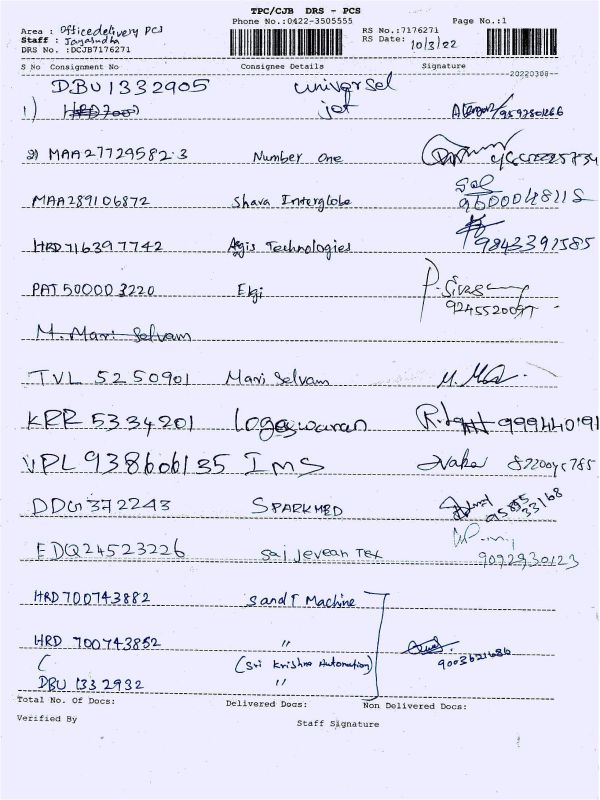 TPC/CJB DRS - PCS
Phone No.:0422-3505555 Page No.:1
Area : Officedelivery PCS RS No.:7176271
Staff : Jayasudha RS Date: 10/3/22
DRS No. :DCJB7176271
S No Consignment No Consignee Details Signature
20220308
DBU1332905 universel
1) HRD700 jet 9597801266
2) MAA27729582.3 Number one
MAA289106872 Shava Interglobe 960004811S
HRD716397742 Agis Technologies 9843391585
PAT500003220 Elgi P. Sivas 9245520097
M. Mari Selvam
TVL 5250901 Mari Selvam M. Ma
KRR 5334201 Logeswaran 999440191
VPL938606135 IMS
DDG372243 SPARKMED 95855 33168
EDQ24523226 Sai Jevean Tex 9092930123
HRD700743882 Sand T Machine
HRD 700743852 "
(Sri Krishna Automation) 9003621686
DBU 1332932 "
Total No. Of Docs: Delivered Docs: Non Delivered Docs:
Verified By Staff Signature